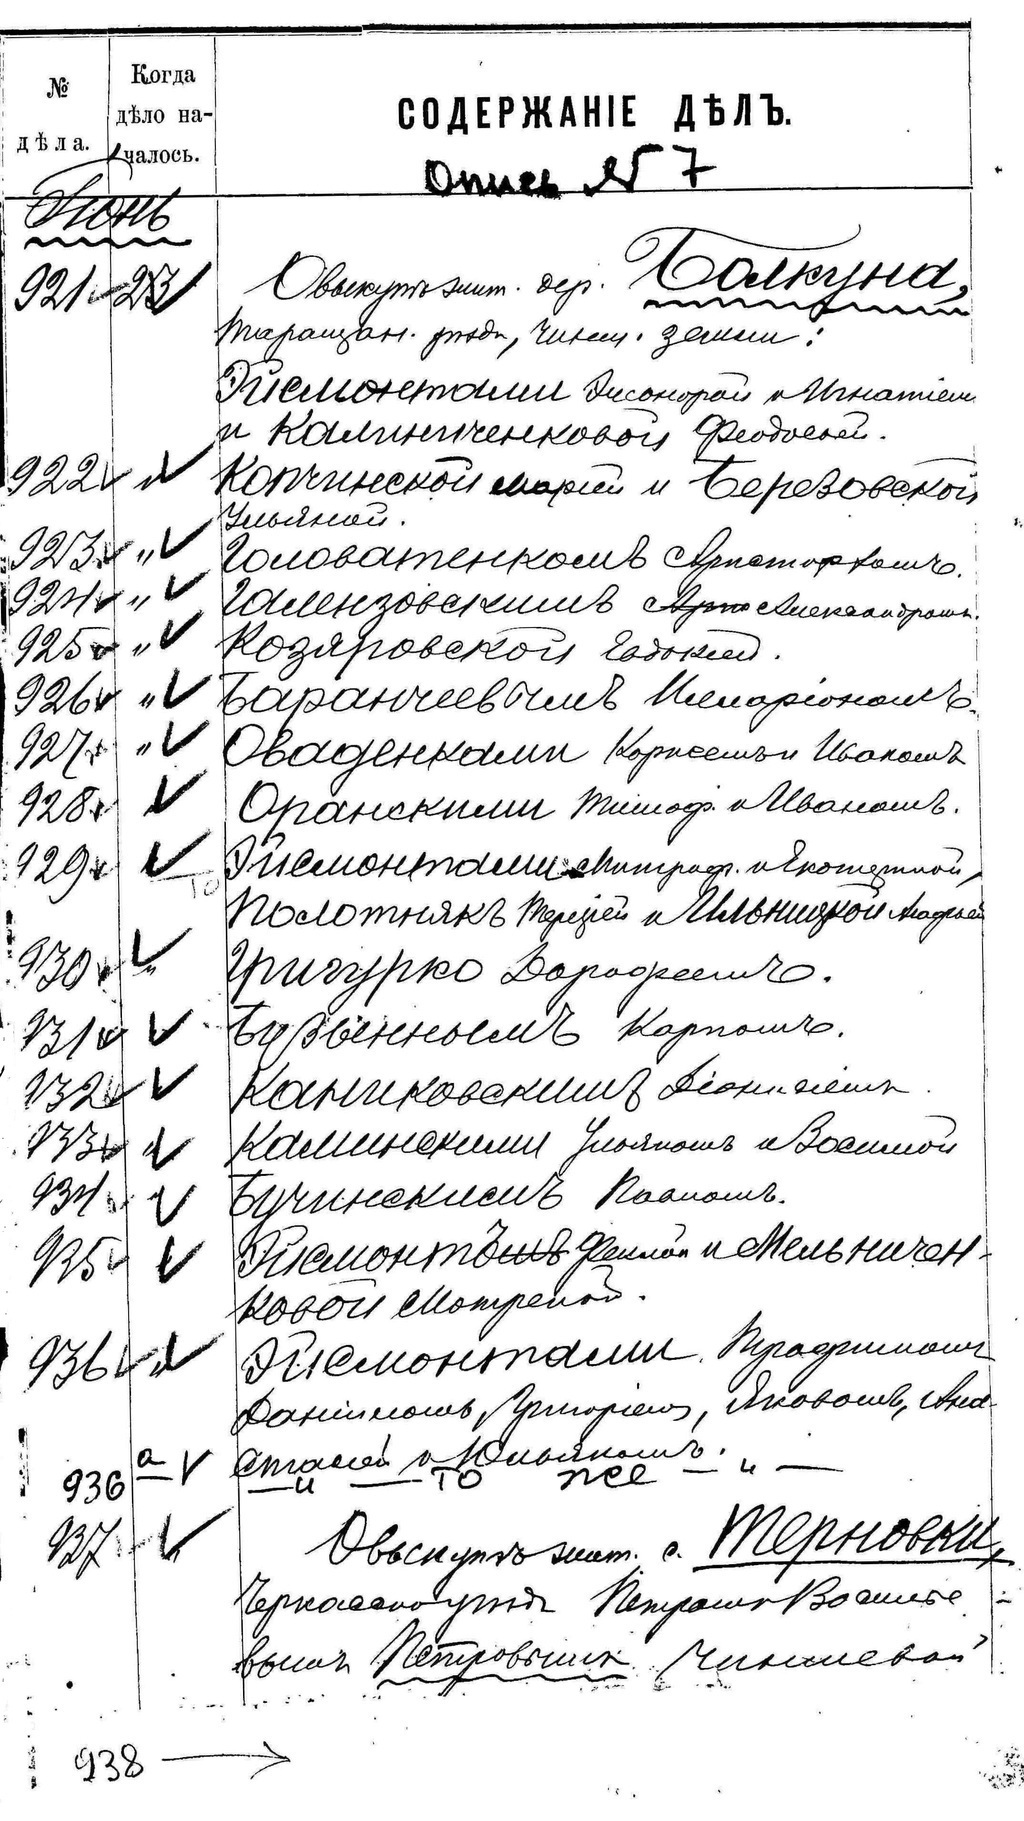 № дѣла.
Когда дѣло началось.
СОДЕРЖАНІЕ ДѢЛЪ.
Опись № 7
Іюнь
921 23 О выкупѣ жит. дер. Балкуна,
Таращан. уѣзда, чинш. земли:
Гисмонтами и Игнатіем
и Калиниченковой Феодосіей.
922 " Копчинской Маріей и Березовской
Ульяной.
923 " Головатенкомъ
924 " Галензовскимъ Александромъ.
925 " Козяровской Евдокіей.
926 " Баранчеевымъ Иларіономъ.
927 " Оваденками и Иваномъ
928 Оранскими Тимоф. и Иваномъ.
929 Гисмонтами Митроф. и Екатериной,
то
Полотнякъ и Ильницкой Агафьей
930 " Григурко Дорофеемъ.
931 Карпомъ.
932 Каниковскимъ Діонисіемъ.
933 " Каминскими Ульяномъ и Василисой
934 Бучинскимъ Павломъ.
935 Гисмонтъ Феклой и Мельничен-
ковой Мотреной.
936 " Гисмонтами Трофимомъ
Даніиломъ, Григоріемъ, Яковомъ, Ана-
стасіей и Юльяномъ.
936 а — " — то же — " —
937 О выкупѣ жит. с. Терновки,
Черкасскаго уѣзда Петромъ Василье
вымъ Петровымъ чиншевой
938 →